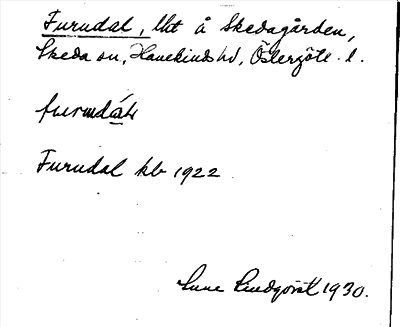 Furudal, lht å Skedagården,
Skeda sn, Hanekinds hd, Östergötl. l.
furudál
Furudal kb 1922
Sune Lindqvist 1930.